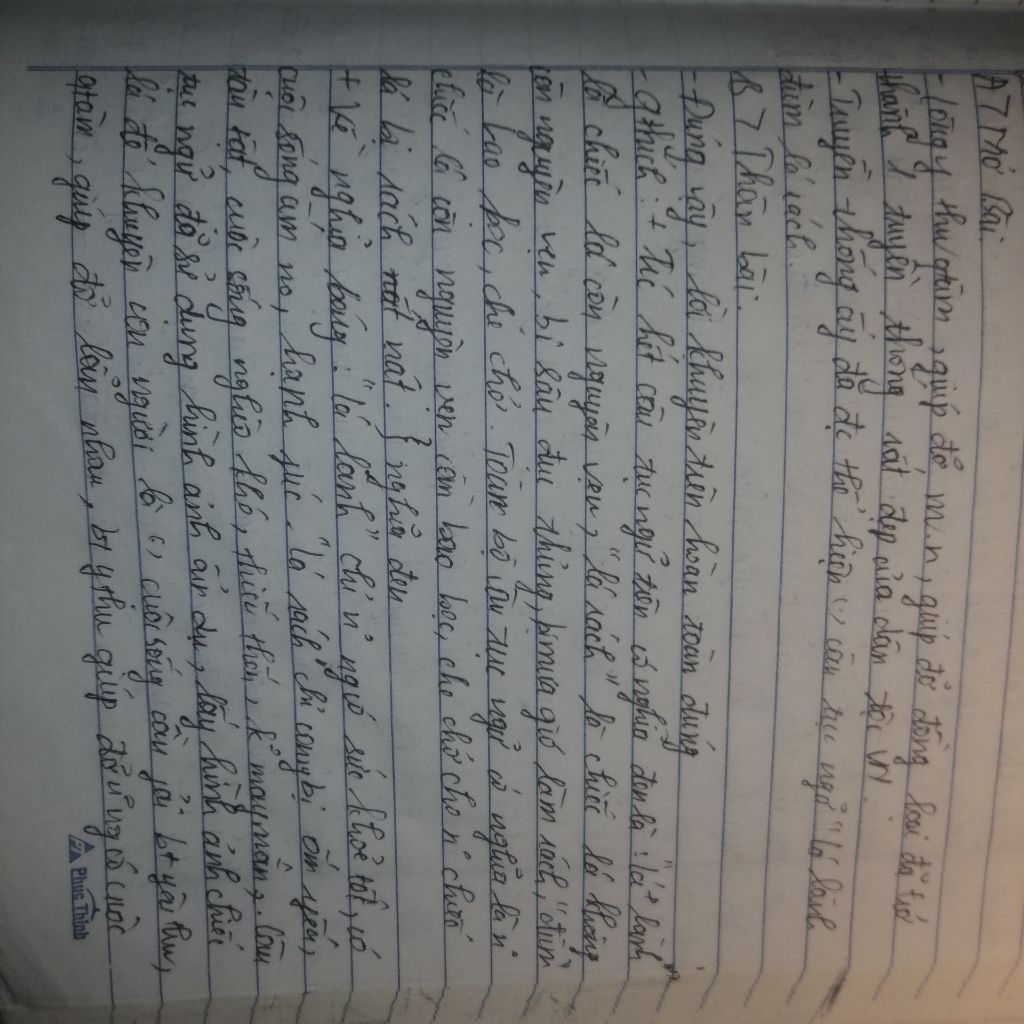 A > Mở bài.
- Lòng y thư/đùm, giúp đỡ m.n, giúp đỡ đồng loại đã trở
thành 1 truyền thống rất đẹp của dân tộc VN.
- Truyền thống ấy đã đc thể hiện câu tục ngữ "lá lành
đùm lá rách.
B > Thân bài.
- Đúng vậy, lời khuyên trên hoàn toàn đúng
- Gthích: + Trc hết câu tục ngữ trên có nghĩa đen là: "lá lành"
là chiếc lá còn nguyên vẹn, "lá rách" là chiếc lá không
còn nguyên vẹn, bị sâu đục thủng, bị mưa gió làm rách, "đùm"
là bao bọc, che chở. Toàn bộ câu tục ngữ có nghĩa là n
chiếc lá còn nguyên vẹn cần bao bọc, che chở cho n chiếc
lá bị rách nát. } nghĩa đen
+ Về nghĩa bóng: "lá lành" chỉ n ngó sức khoẻ tốt, có
cuôc sống ấm no, hạnh fúc. "lá rách chỉ bị ốm yếu,
tàn tật, cuộc sống nghèo khó, thiếu thốn, k may mắn,. Câu
tục ngữ đã sử dụng hình ảnh ẩn dụ, lấy hình ảnh chiếc
lá để khuyên con người là cuôc sống cần fải bt yêu thư,
giúp đỡ lẫn nhau, bt y thư giúp đỡ n ng có cuôc
Phúc Thịnh